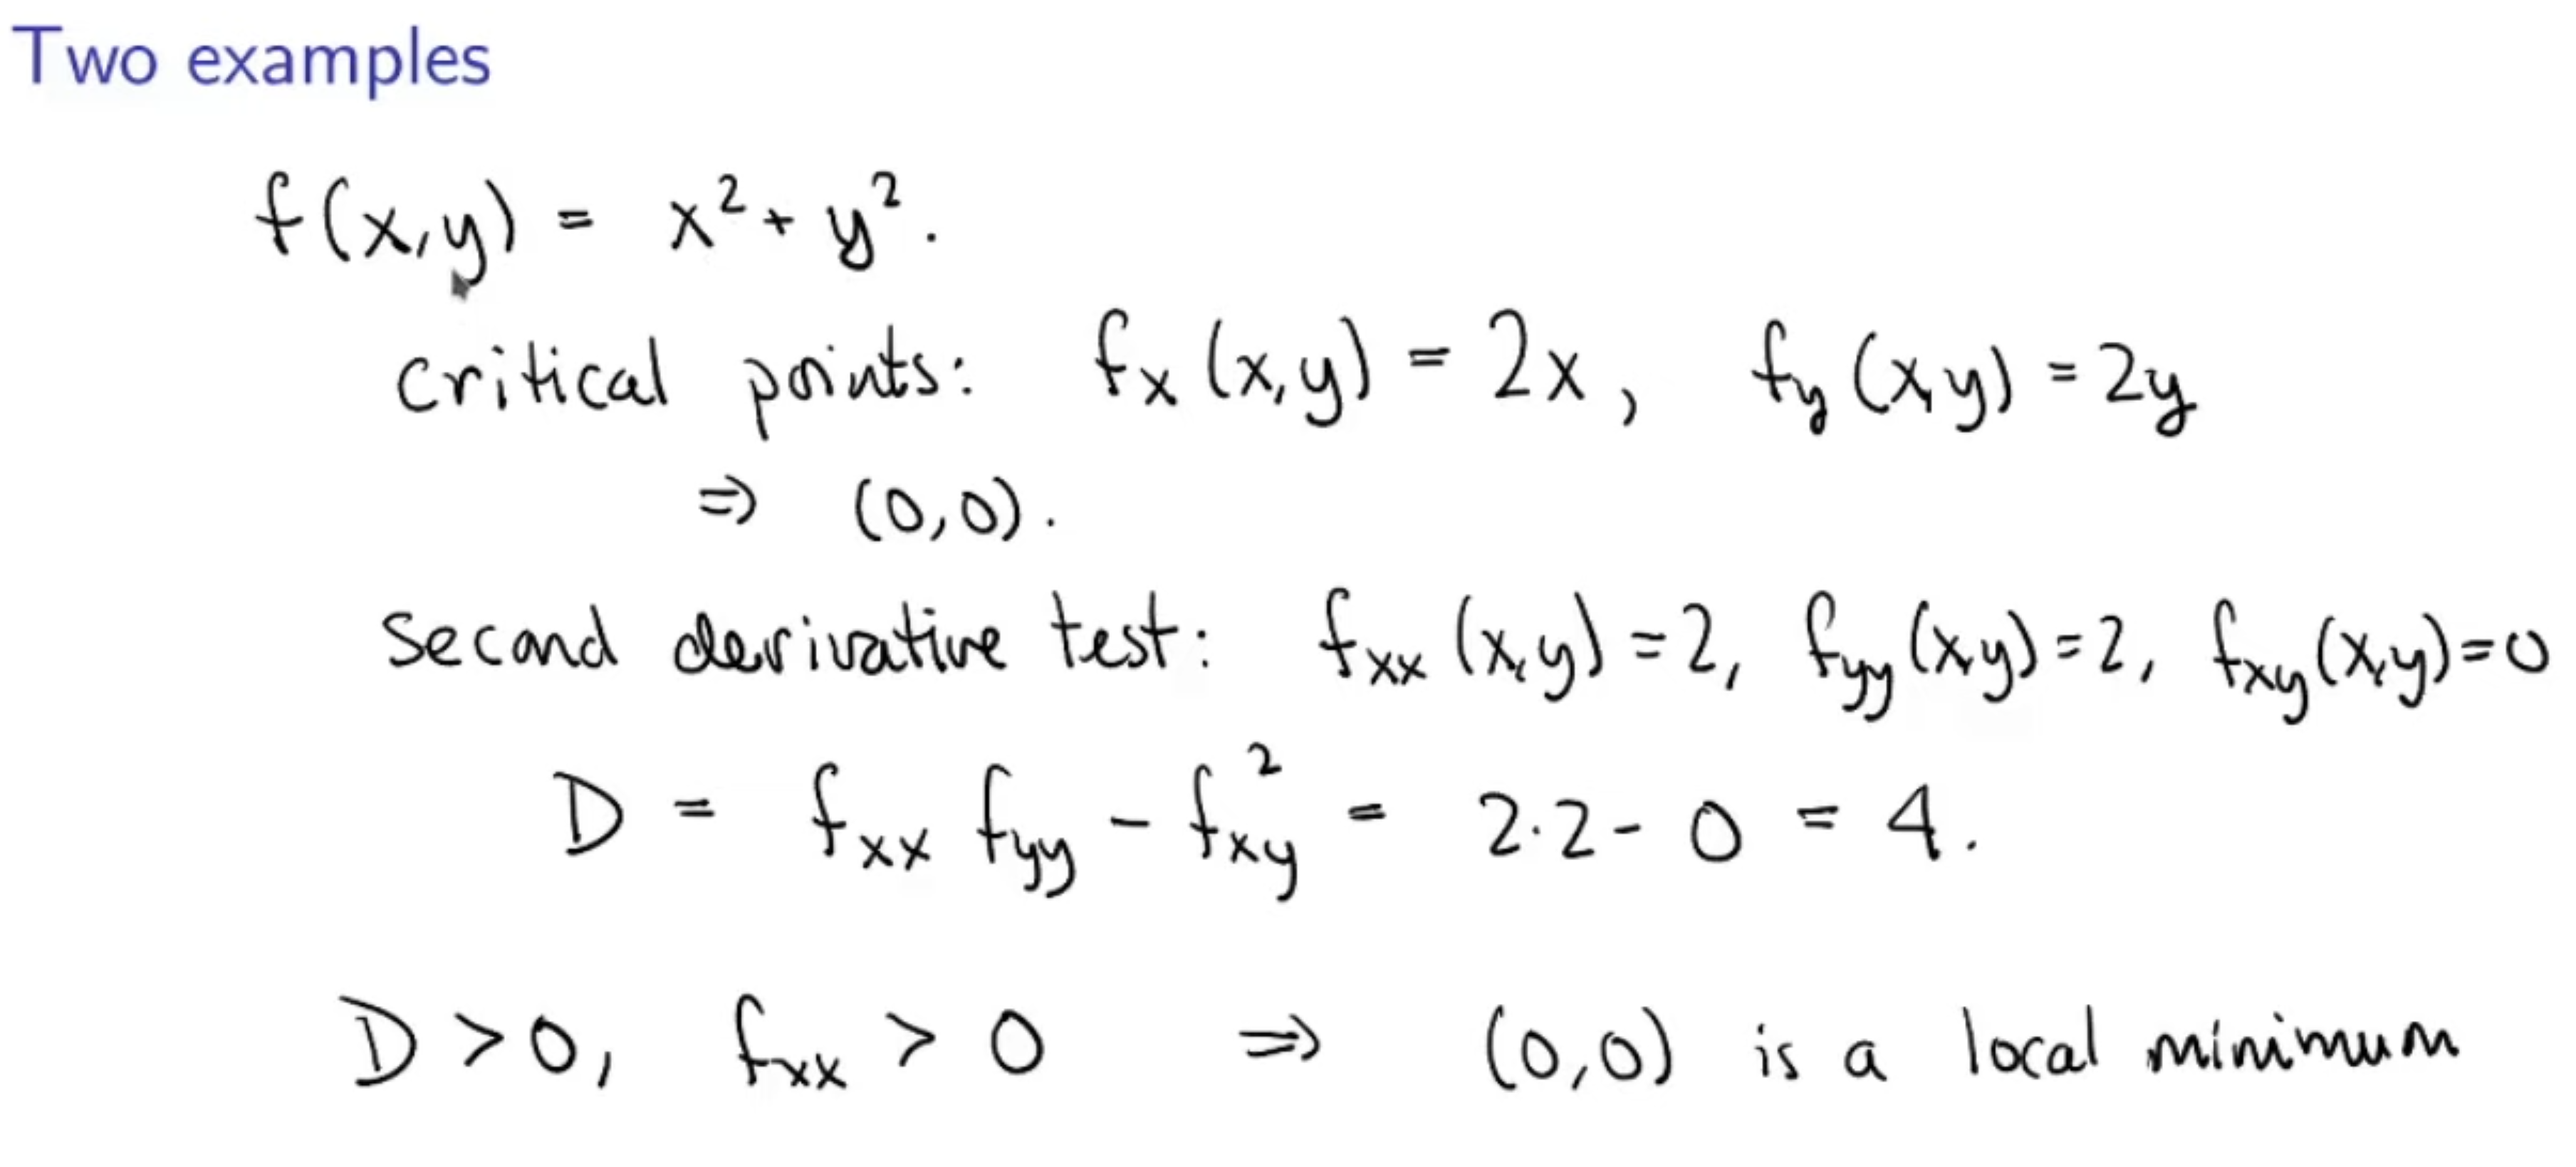 Two examples
f(x,y) = x² + y².
critical points: fₓ(x,y) = 2x, f_y(x,y) = 2y
⇒ (0,0).
Second derivative test: f_xx(x,y) = 2, f_yy(x,y) = 2, f_xy(x,y) = 0
D = f_xx f_yy - f_xy² = 2·2 - 0 = 4.
D > 0, f_xx > 0 ⇒ (0,0) is a local minimum